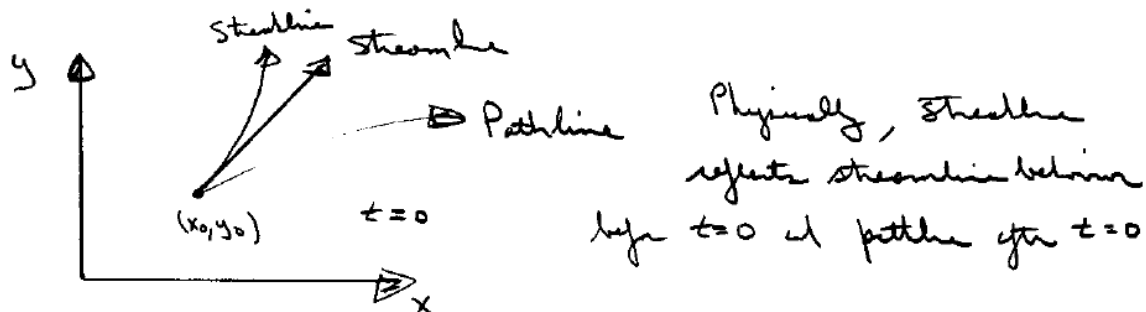 Streakline
Streamline
y
Pathline
Physically, streakline
reflects streamline behavior
before t=0 and pathline after t=0
(x₀,y₀)
t=0
x